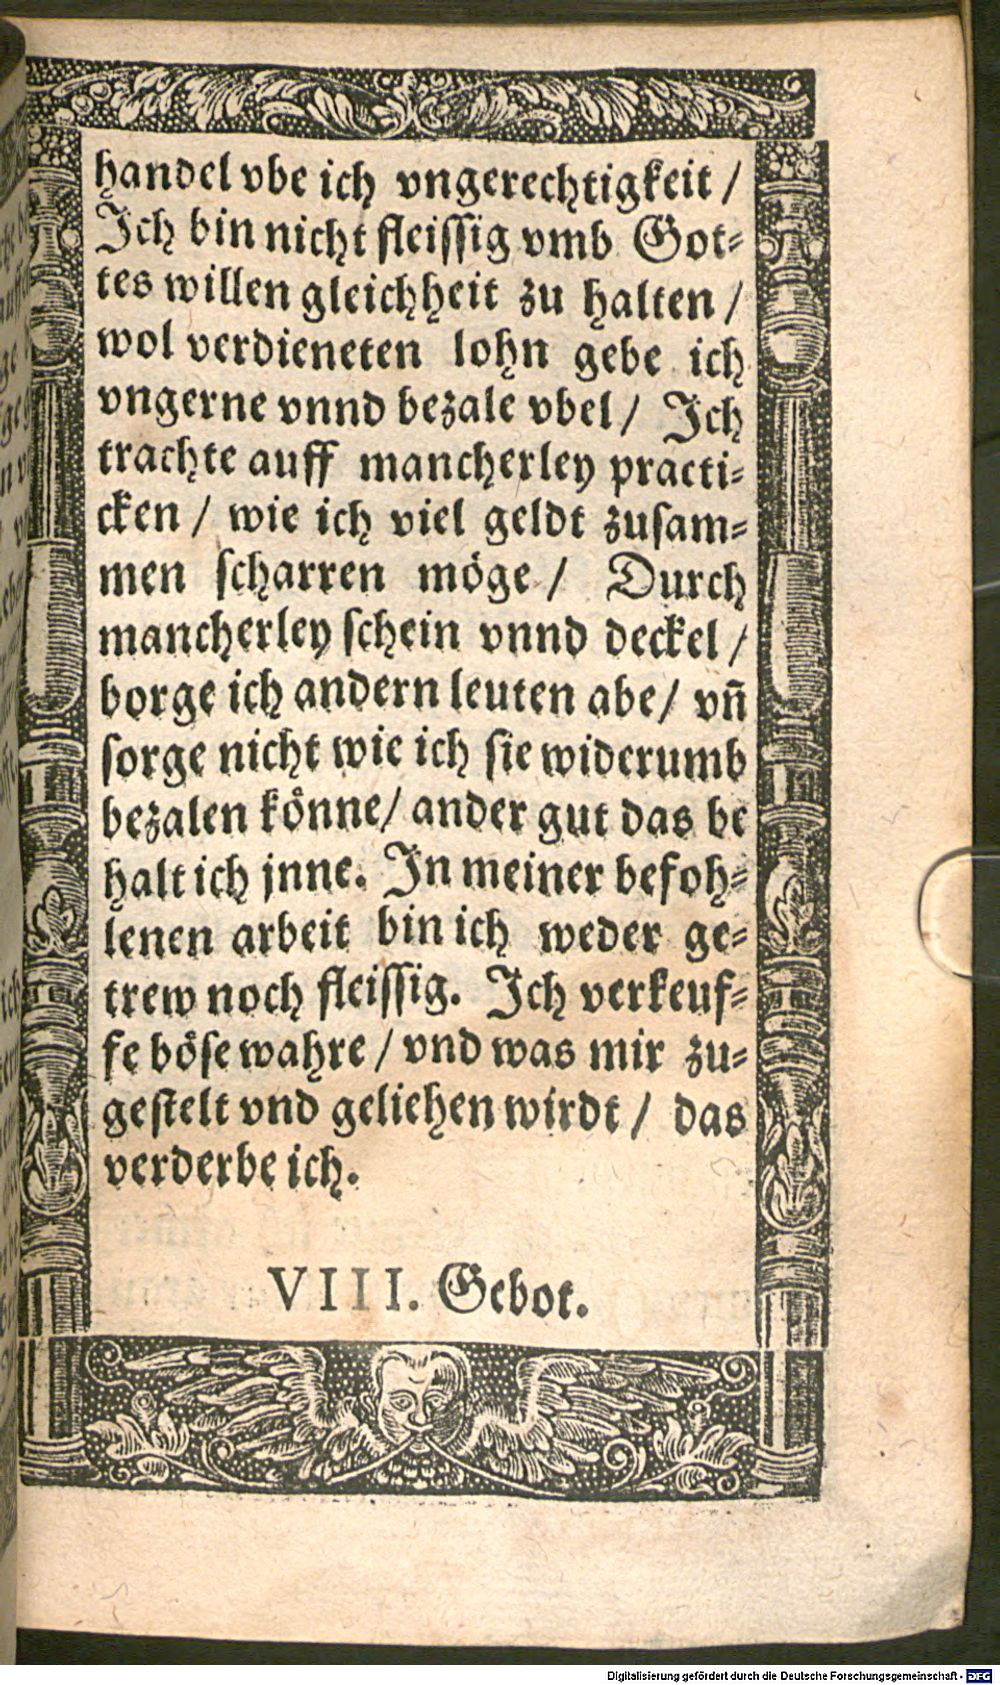 handel vbe ich vngerechtigkeit /
Ich bin nicht fleissig vmb Got=
tes willen gleichheit zu halten /
wol verdieneten lohn gebe ich
vngerne vnnd bezale vbel / Ich
trachte auff mancherley practi=
cken / wie ich viel geldt zusam=
men scharren möge / Durch
mancherley schein vnnd deckel /
borge ich andern leuten abe / vñ
sorge nicht wie ich sie widerumb
bezalen könne / ander gut das be
halt ich jnne. In meiner befoh=
lenen arbeit bin ich weder ge=
trew noch fleissig. Ich verkeuf=
fe böse wahre / vnd was mir zu=
gestelt vnd geliehen wirdt / das
verderbe ich.
VIII. Gebot.
Digitalisierung gefördert durch die Deutsche Forschungsgemeinschaft - DFG